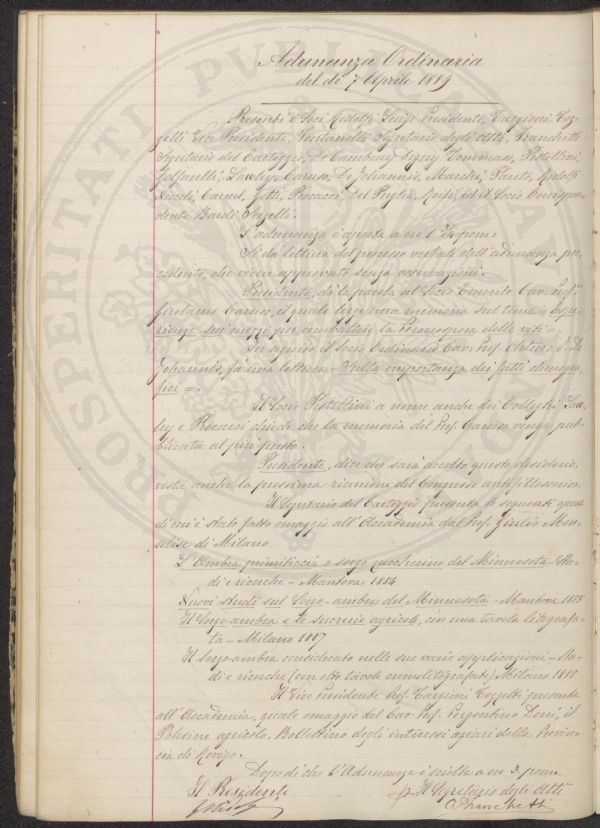 Adunanza Ordinaria
del dì 7 Aprile 1889
Presenti i Soci Ridolfi Luigi Presidente, Targioni Toz-
zetti Vice Presidente, Fontanelli Segretario degli Atti, Franchetti
Segretario del Carteggio, De Cambray Digny Tommaso, Pestellini,
Caruso, De Johannis, Marchi, Pareto, Ridolfi
Niccolò, Caruel, Procacci, Del Puglia, ed il Socio Corrispon-
dente Bardi Serzelli.
L'adunanza è aperta a ore 1 pom:
Si dà lettura del processo verbale dell'adunanza pre-
cedente, che viene approvato senza osservazioni.
Presidente, dà la parola al Socio Emerito Cav. Prof.
Girolamo Caruso, il quale legge una memoria sul tema = Espe-
rienze sui mezzi per combattere la Peronospora delle viti =
In seguito il Socio Ordinario Cav: Prof. Arturo J. De
Johannis, fa una lettura = Sulla importanza dei fatti demogra-
fici =.
Il Socio Pestellini a nome anche dei Colleghi Law-
ley e Procacci chiede che la memoria del Prof. Caruso venga pub-
blicata al più presto.
Presidente, dice che sarà accolto questo desiderio,
vista anche la prossima riunione del Congresso antifillosserico.
Il Segretario del Carteggio presenta le seguenti opere
di cui è stato fatto omaggio all'Accademia dal Prof. Giulio Mon-
selise di Milano
L'Ambra primiticcia o sorgo zuccherino del Minnesota - Stu-
di e ricerche - Mantova 1884
Nuovi studi sul Sorgo-ambra del Minnesota - Mantova 1885
Il Sorgo-ambra e le sucrerie agricole, con una tavola litografa-
ta - Milano 1887
Il sorgo-ambra considerato nelle sue varie applicazioni - Stu-
di e ricerche (con otto tavole cromolitografate) Milano 1888
Il Vice Presidente Prof. Targioni Tozzetti presenta
all'Accademia, quale omaggio del Cav: Prof. Doni, il
Polesine agricolo. Bollettino degli interessi agrari della Provin-
cia di Rovigo.
Dopo di che l'Adunanza è sciolta a ore 3 pom.
Il Presidente
p. Il Segretario degli Atti
A. Franchetti
PROSPERITATI PUBLICAE